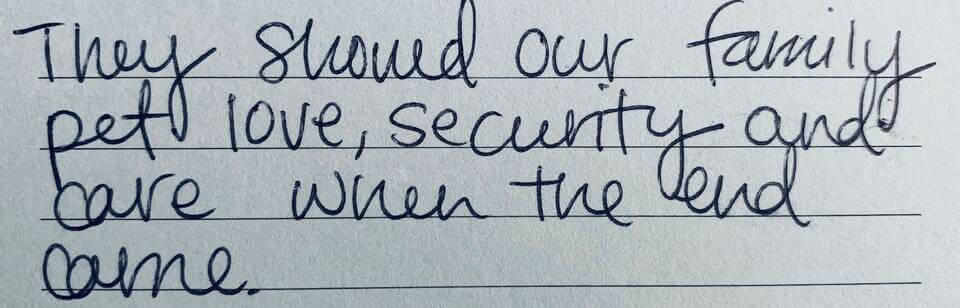 They showed our family
pet love, security and
care when the end
came.